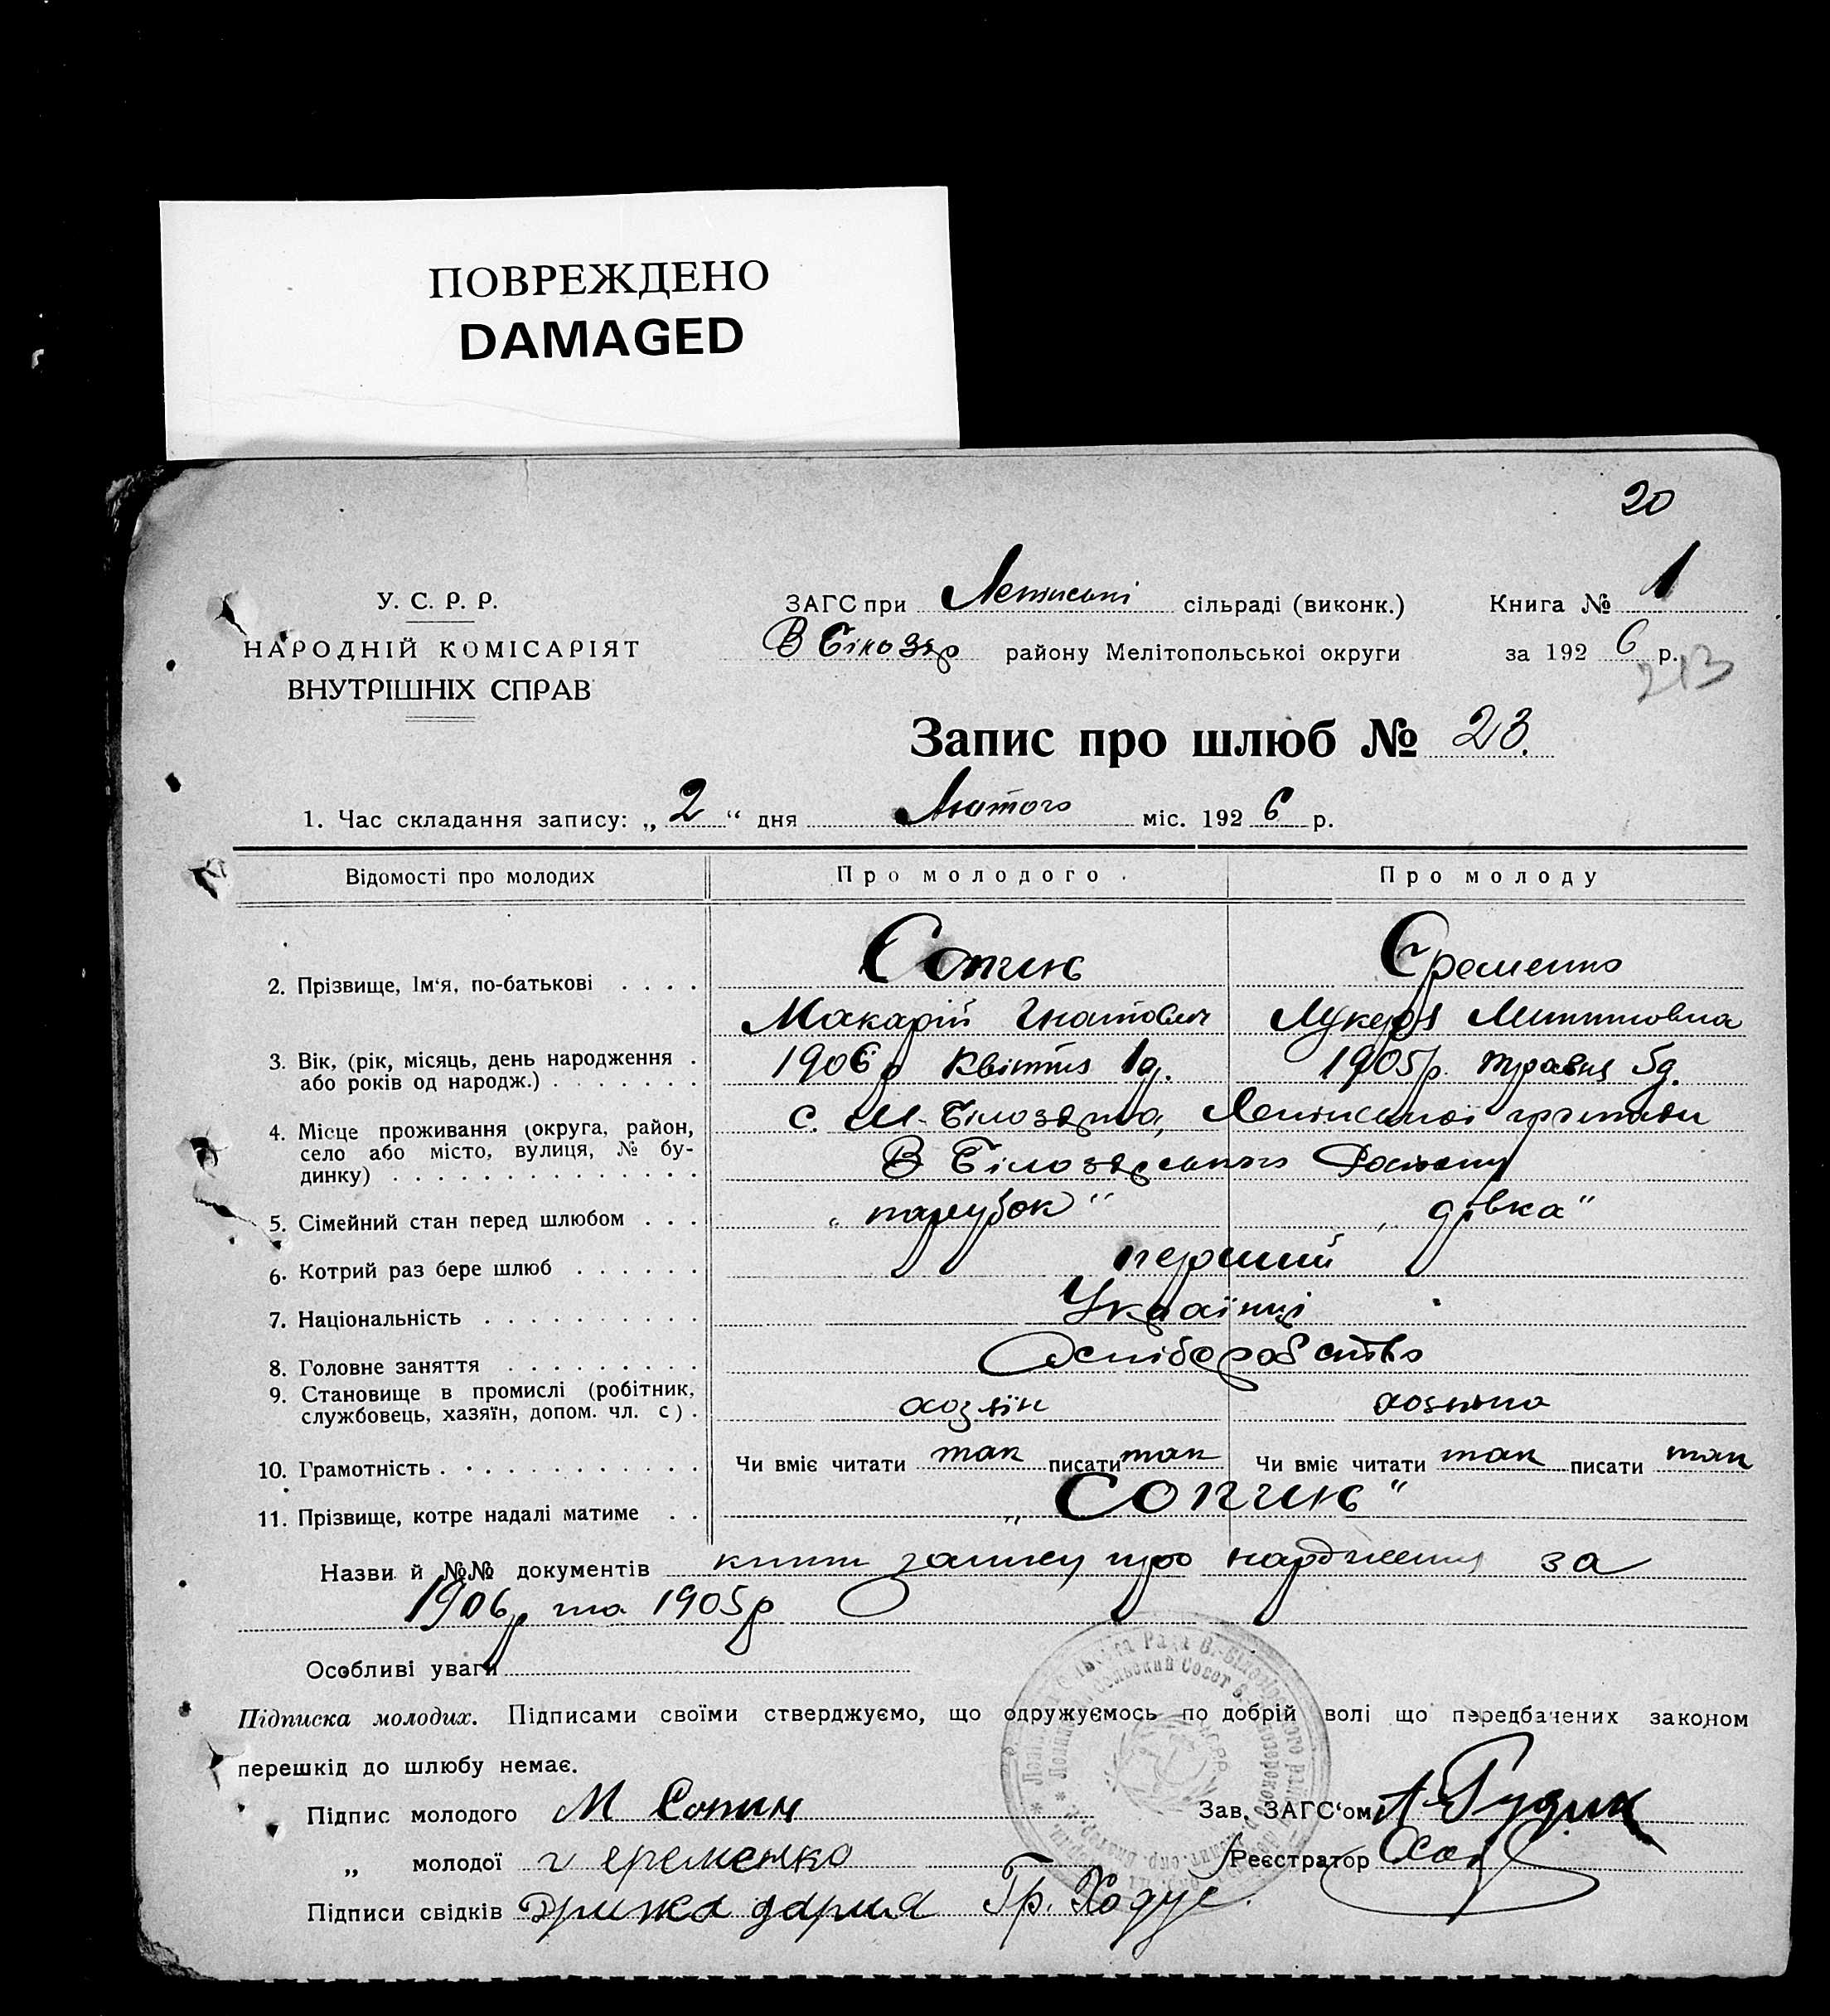 ПОВРЕЖДЕНО
DAMAGED
20
У. С. Р. Р.
НАРОДНІЙ КОМІСАРІЯТ
ВНУТРІШНІХ СПРАВ
ЗАГС при Ленінській сільраді (виконк.)
В Білозер району Мелітопольської округи
Книга № 1
за 192 6 р.
213
Запис про шлюб № 23.
1. Час складання запису: „ 2 “ дня Лютого міс. 192 6 р.
Відомості про молодих Про молодого. Про молоду
2. Прізвище, Ім‘я, по-батькові . . . . Сопик Єременко
Макарій Гнатович Лукерія
3. Вік, (рік, місяць, день народження . або років од народж.) . . . . . . . 1906р Квітня 1д. 1905р. травня 5д.
4. Місце проживання (округа, район, село або місто, вулиця, № будинку) . . . . . . . . . . . . . с. М-Білозерка, Ленінської
В Білозерського Району
5. Сімейний стан перед шлюбом . . . „парубок“ „дівка“
6. Котрий раз бере шлюб . . . . . . перший
7. Національність . . . . . . . . . . Українці
8. Головне заняття . . . . . . . . . хліборобство
9. Становище в промислі (робітник, службовець, хазяїн, допом. чл. с) . хозяїн хозяйка
10. Грамотність . . . . . . . . . . . . Чи вміє читати так писати так Чи вміє читати так писати так
11. Прізвище, котре надалі матиме . . „Сопик“
Назви й №№ документів книги запису про народження за
1906р та 1905р
Особливі уваги
Підписка молодих. Підписами своїми стверджуємо, що одружуємось по добрій волі що передбачених законом
перешкід до шлюбу немає.
Підпис молодого М Сопик
Зав. ЗАГС‘ом А Рудик
„ молодої г еременко
Реєстратор
Підписи свідків Дрижа дария Гр. Ходус.